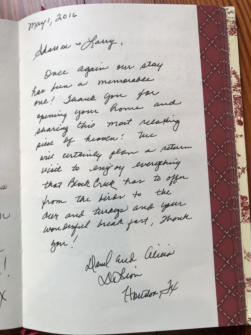 May 1, 2016
Sharon & Larry,
Once again our stay
has been a memorable
one! Thank you for
opening your home and
sharing this most relaxing
piece of heaven! We
will certainly plan a return
visit to enjoy everything
that Creek has to offer
from the birds to the
deer and turkeys and your
wonderful breakfast, Thank
you!
David and Alicia
Houston, TX